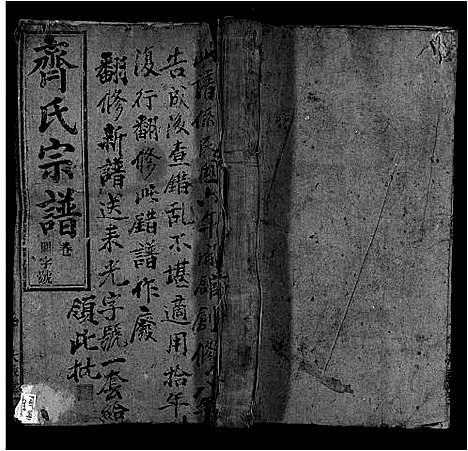 此譜係民國六年開館創修八年
告成後查錯乱不堪適用拾年
復行翻修此錯譜作廢
翻修新譜送來光字號一套給
領此批
齊氏宗譜
卷
字號